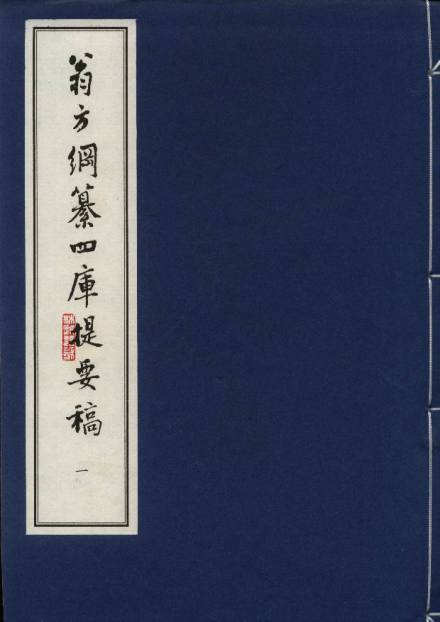 翁方綱纂四庫提要稿
一